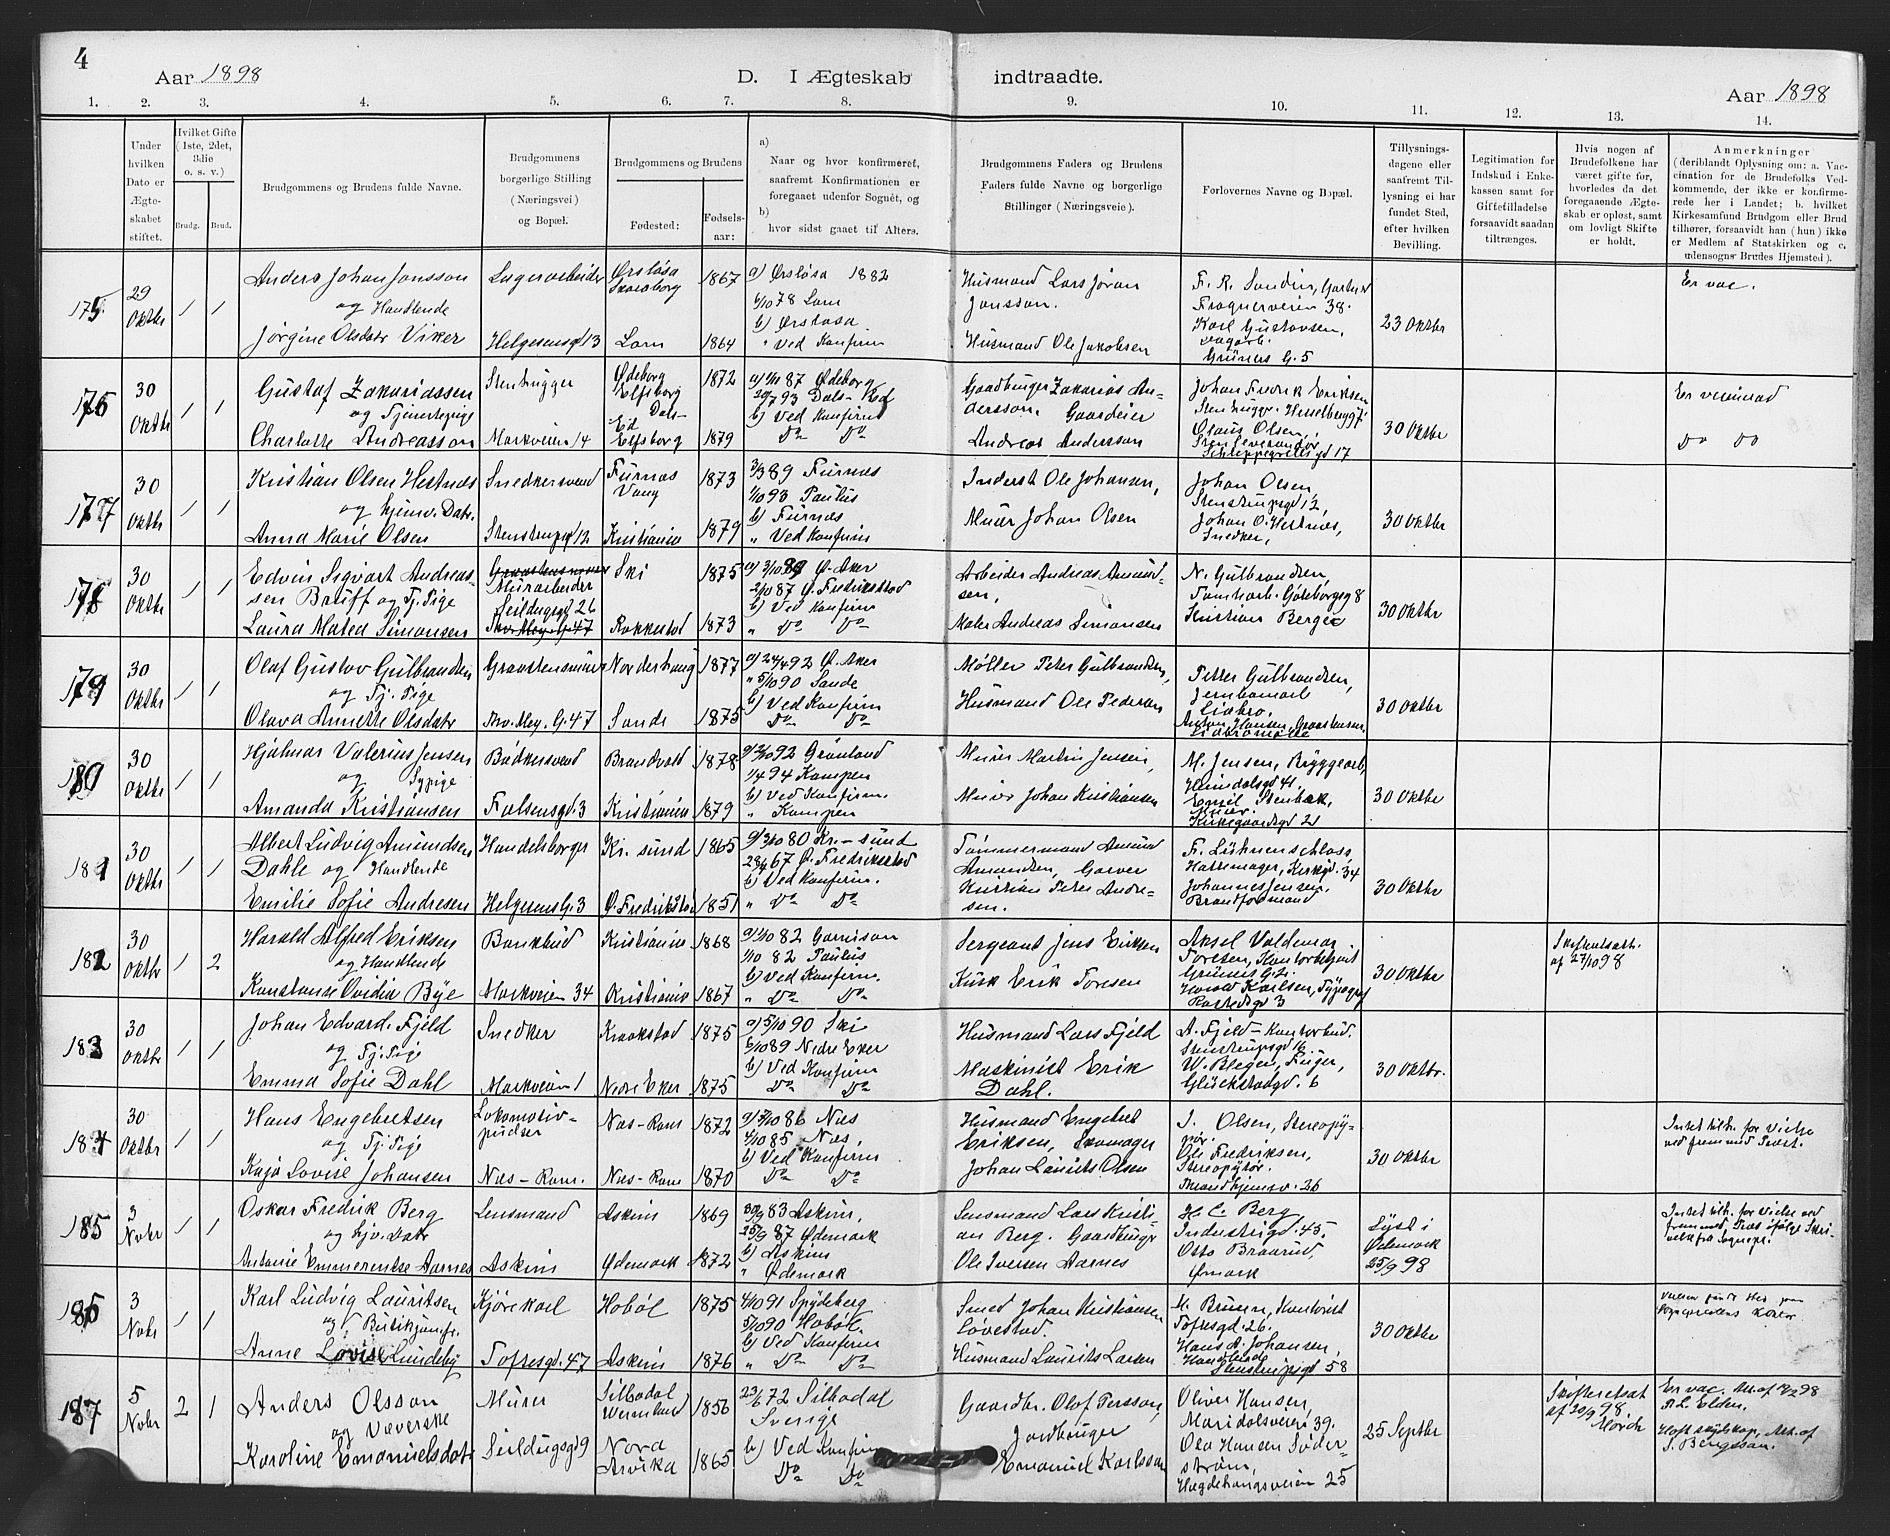 4
Aar 1898
D. I Ægteskab indtraadte.
Aar 1898
1. 2. 3. 4. 5. 6. 7. 8. 9. 10. 11. 12. 13. 14.
Under hvilken Dato er Ægteskabet stiftet.
Hvilket Gifte (1ste, 2det, 3die o. s. v.)
Brudg. Brud.
Brudgommens og Brudens fulde Navne.
Brudgommens borgerlige Stilling (Næringsvei) og Bopæl.
Brudgommens og Brudens
Fødested: Fødselsaar:
a) Naar og hvor konfirmeret, saafremt Konfirmationen er foregaaet udenfor Sognet, og
b) hvor sidst gaaet til Alters.
Brudgommens Faders og Brudens Faders fulde Navne og borgerlige Stillinger (Næringsveie).
Forlovernes Navne og Bopæl.
Tillysningsdagene eller saafremt Tillysning ei har fundet Sted, efter hvilken Bevilling.
Legitimation for Indskud i Enkekassen samt for Giftetilladelse forsaavidt saadan tiltrænges.
Hvis nogen af Brudefolkene har været gifte før, hvorledes da det foregaaende Ægteskab er opløst, samt om lovligt Skifte er holdt.
Anmerkninger (deriblandt Oplysning om: a. Vaccination for de Brudefolks Vedkommende, der ikke er konfirmerede her i Landet; b. hvilket Kirkesamfund Brudgom eller Brud tilhører, forsaavidt han (hun) ikke er Medlem af Statskirken og c. udensogns Brudes Hjemsted).
175. 29 Oktbr 1 1
Anders Johan Jonsson
og Handlende
Jørgine Olsdatr Viker
Lagerarbeider
Helgesensgd 13
Ørsløsa Skaraborg 1867
Lom 1864
a) Ørsløsa 1882
1/10 78 Lom
b) Ørsløsa
" Ved Konfirm
Husmand Lars Jøran Jonsson.
Husmand Ole Jakobsen
Frognerveien 38.
Karl Gustavsen,
Grüners G. 5
23 Oktbr
Er vac.
176 30 Oktbr 1 1
Gustaf Zakariassen
og Tjenestepige
Charlotte Andreasson
Stenhugger
Markveien 14
Ødeborg Elfsborg 1872
Dals-Ed Elfsborg 1879
a) 1/11 87 Ødeborg
20/7 93 Dals-Ed
b) Ved Konfirm
Do Do
Gaardbruger Zakarias Andersson. Gaardeier
Andreas Andersson
Johan Fredrik Eriksen
Stenhugger. Hesselbergg 7
Olaus Olsen,
Stenleverandør
Schleppegrellsgd 17
30 Oktbr
Do Do
177 30 Oktbr 1 1
Kristian Olsen Hestnæs
og hjemv. Datr.
Anna Marie Olsen
Snedkersvend
Stenstrupgd 12
Furnæs Vang 1873
Kristiania 1879
3/3 89 Furnæs
1/10 93 Paulus
b) Furnæs
" Ved Konfirm
Inderst Ole Johansen,
Murer Johan Olsen
Johan Olsen,
Stenstrupsgd 12,
Johan O. Hestnæs,
Snedker,
30 Oktbr
178 30 Oktbr 1 1
Edvin Sigvart Andreassen Bruff og Tj. Pige
Laura Matea Simonsen
Murarbeider
Seildugsgd 26
Thv. Mey. G. 47
Ski 1875
Rakkestad 1873
a) 3/10 89 Ø. Aker
2/10 87 Ø. Fredrikstad
b) Ved Konfirm
" Do Do
Arbeider Andreas Amundsen,
Maler Andreas Simonsen
N. Gulbrandsen,
Tomtearb. Göteborgsg 8
Kristian Berger
30 Oktbr
179 30 Oktbr 1 1
Olaf Gustav Gulbrandsen
og Tj. Pige
Olava Annette Olsdatr
Graastensmurer
Thv. Mey. G. 47
Norderhaug 1877
Sande 1875
a) 24/4 92 Ø. Aker
" 5/10 90 Sande
b) Ved Konfirm
Do Do
Møller Peter Gulbrandsen,
Husmand Ole Pedersen
Petter Gulbrandsen,
Jernbanearb
Liabro.
Anton Hansen, Graastensm.
30 Oktbr
180 30 Oktbr 1 1
Hjalmar Valerius Jensen
og Sypige
Amanda Kristiansen
Bødkersvend
Falsensgd. 3
Brandvold 1878
Kristiania 1879
a) 2/10 92 Grønland
1/4 94 Kampen
b) Ved Konfirm.
" Kampen
Murer Martin Jensen,
Murer Johan Kristiansen
M. Jensen, Bryggearb,
Heimdalsgd 41,
Emil Stenbæk,
Murer.
Kirkegaardsgd 21
30 Oktbr
181 30 Oktbr 1 1
Albert Ludvig Amundsen
Dahle og Handlende
Emilie Sofie Andresen
Handelsborger
Helgesens G. 3
Kr. sund 1865
Ø. Fredrikstad 1851
a) 3/10 80 Kr.-sund
28/4 67 Ø. Fredrikstad
b) Ved Konfirm.
" Do Do
Tømmermand Amund Amundsen, Garver
Kristian Peter Andresen.
F. Lühnenschloss,
Hattemager, Kirkgd. 34
Johannes Jensen,
Brandformand
30 Oktbr
182 30 Oktbr 1 2
Harald Alfred Eriksen
og Handlende
Konstanse Ovidia Bye
Bankbud
Markveien 34
Kristiania 1868
Kristiania 1867
a) 1/10 82 Garnison
1/10 82 Paulus
b) Ved Konfirm.
" Do Do
Sergeant Jens Eriksen
Kusk Erik Toresen
Aksel Valdemar
Toresen, Kontorbetjent
Grüners G 2.
Harald Karlsen, Typograf
Rathkesgd 3
30 Oktbr
Skifteretsatt.
af 27/10 98
183 30 Oktbr 1 1
Johan Edvard Fjeld
og Tj. Pige
Emma Sofie Dahl
Snedker
Markveien 1
Kraakstad 1875
Nedre Eker 1875
a) 5/10 90 Ski
6/10 89 Nedre Eker
b) Ved Konfirm
Do Do
Husmand Lars Fjeld
Maskinist Erik Dahl.
A. Fjeld - Kontorbud.
Stenstrupsgd 16
W. Blegen, Feiger,
Glückstadgd. 6
30 Oktbr.
184 30 Oktbr 1 1
Hans Engebretsen
og Tj. Pige
Kaja Lovise Johansen
Lokomotivpudser
Næs-Rom.
Næs-Rom 1872
Næs-Rom 1870
a) 3/10 86 Næs
4/10 85 Næs,
b) Ved Konfirm
Do Do
Husmand Engebret Eriksen, Skomager
Johan Laurits Olsen
J. Olsen, Stereopytør.
Ole Fredriksen,
Stereopytør.
Trondhjemsv. 26
30 Oktbr
Intet tilh. for Vielse
ved fremmed Præst.
185 3 Novbr 1 1
Oskar Fredrik Berg
og hjv. Datr
Antonie Emmerentse Aarnes
Lensmand
Askim
Askim 1869
Ødemark 1872
30/9 83 Askim,
25/9 87 Ødemark
b) Askim
" Ødemark
Lensmand Lars Kristian Berg. Gaardbruger
Ole Iversen Aarnes
H. C. Berg,
Industrigd. 45.
Otto Braarud,
Ømark
Lyst i Ødemark 25/9 98
Intet tilh. for Vielse ved
fremmed Præst ifølge Skrivelse fra Sognepr.
186 3 Novbr 1 1
Karl Ludvig Lauritsen
og Butikjomfr.
Anne Lovise Lundeby
Kjørekarl
Toftesgd. 47
Hobøl 1875
Askim 1876
4/10 91 Spydeberg
5/10 90 Hobøl.
b) Ved Konfirm
" Do Do
Smed Johan Kristiansen Løvestad.
Husmand Laurits Larsen
M. Bruun, Kontorist
Toftesgd. 26.
Hans A. Johansen,
Handlende
Stenstrupsgd 58
30 Oktbr
187 5 Novbr 2 1
Anders Olsson
og Væverske
Karoline Emanuelsdatr
Murer
Seildugsgd 9
Silbodal Wermland 1856
Nora Arvika 1865
23/6 72 Silbodal
Sverige
b) Ved Konfirm
Do Do
Gaardbr. Olof Persson,
Jordbruger
Emanuel Karlsson
Oliver Hansen,
Maridalsveien 39.
Ola Hansen Søderstrøm,
Hægdehaugsveien 25
25 Septbr
Skifteretsat
af 20/9 98
Er vac.